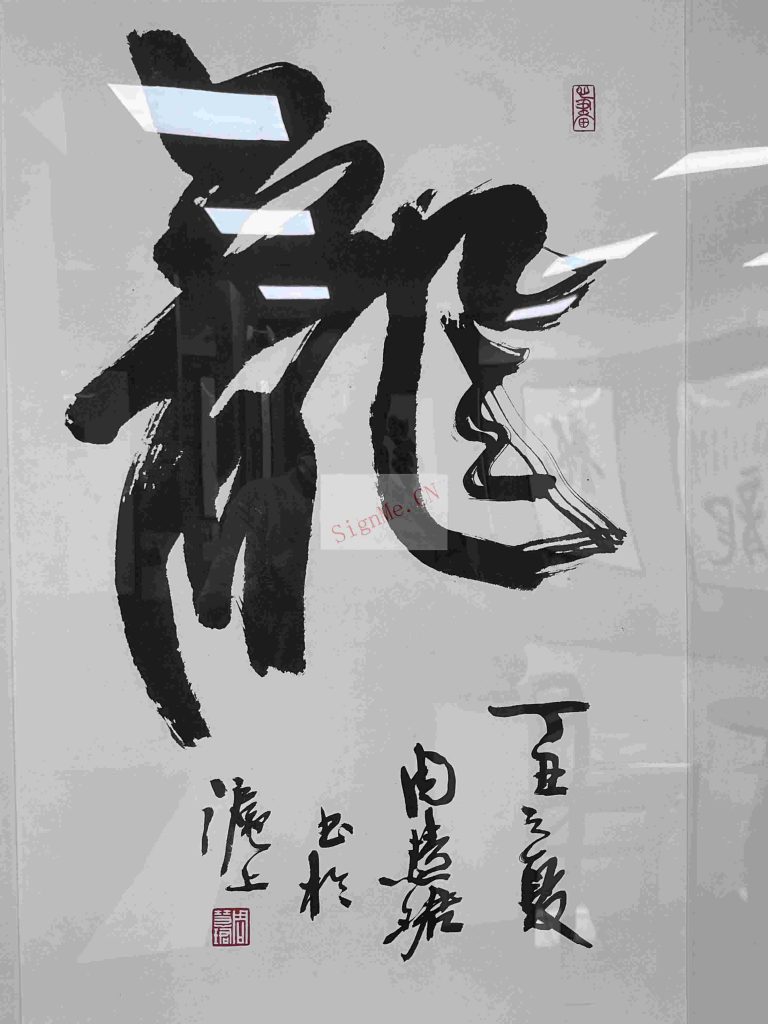 龍
丁丑之夏
周慧珺
书於
滬上
周慧珺
SignMe.CN